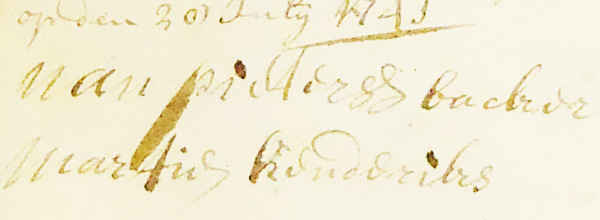 op den 20 July 1743
Nan pieterss backer
Martie henderiks